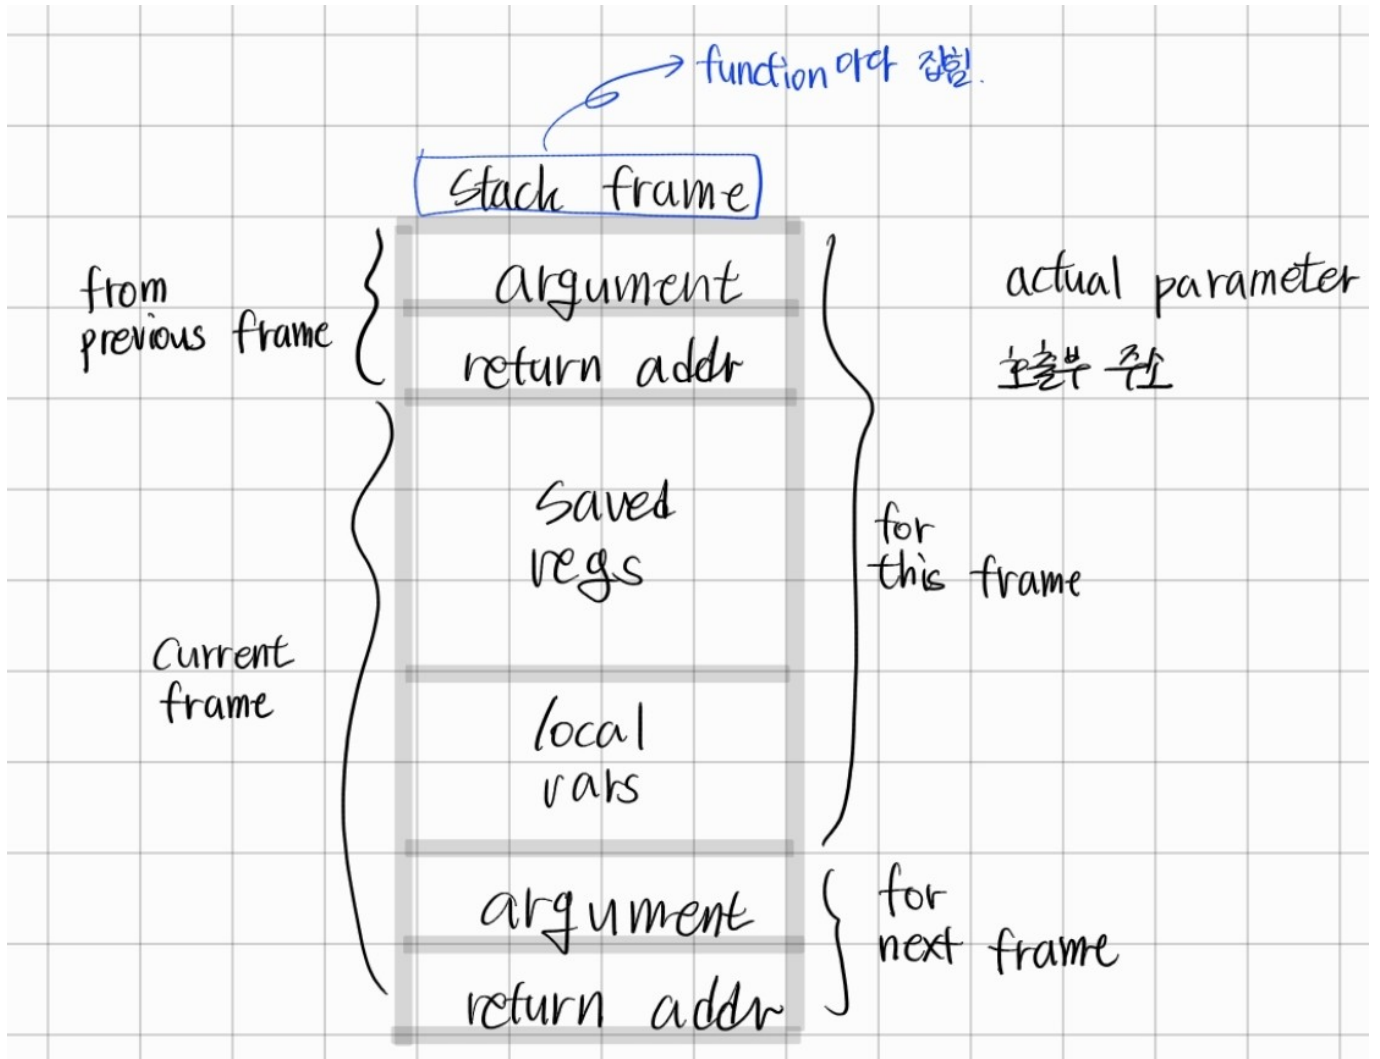 function 마다 잡힘.
Stack frame
from
previous frame
argument
return addr
actual parameter
호출부 주소
Saved
regs
for
this frame
Current
frame
local
vars
argument
return addr
for
next frame